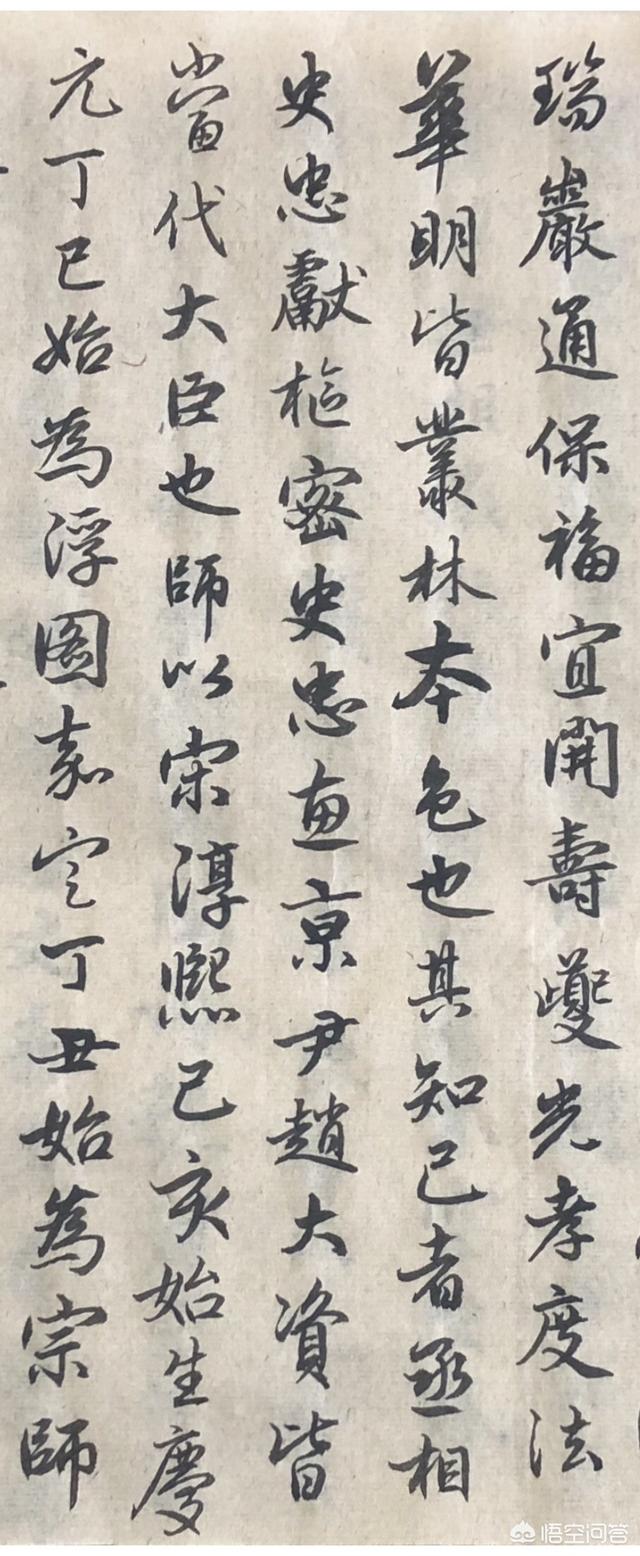 瑞巖通保福宜開壽夔光孝度法
華明皆叢林本色也其知己者丞相
史忠獻樞密史忠惠京尹趙大資皆
當代大臣也師以宋淳熙己亥始生慶
元丁巳始為浮圖嘉定丁丑始為宗師
悟空问答